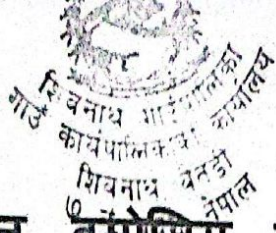 शिवनाथ गाउँपालिका
गाउँ कार्यपालिकाको कार्यालय
शिवनाथ बैतडी
७ नेपाल